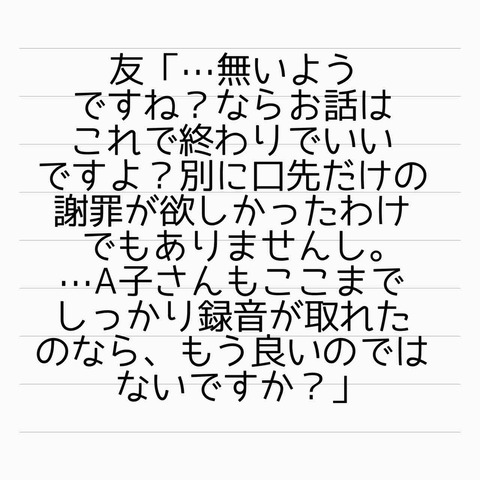 友「…無いよう
ですね？ならお話は
これで終わりでいい
ですよ？別に口先だけの
謝罪が欲しかったわけ
でもありませんし。
…A子さんもここまで
しっかり録音が取れた
のなら、もう良いのでは
ないですか？」